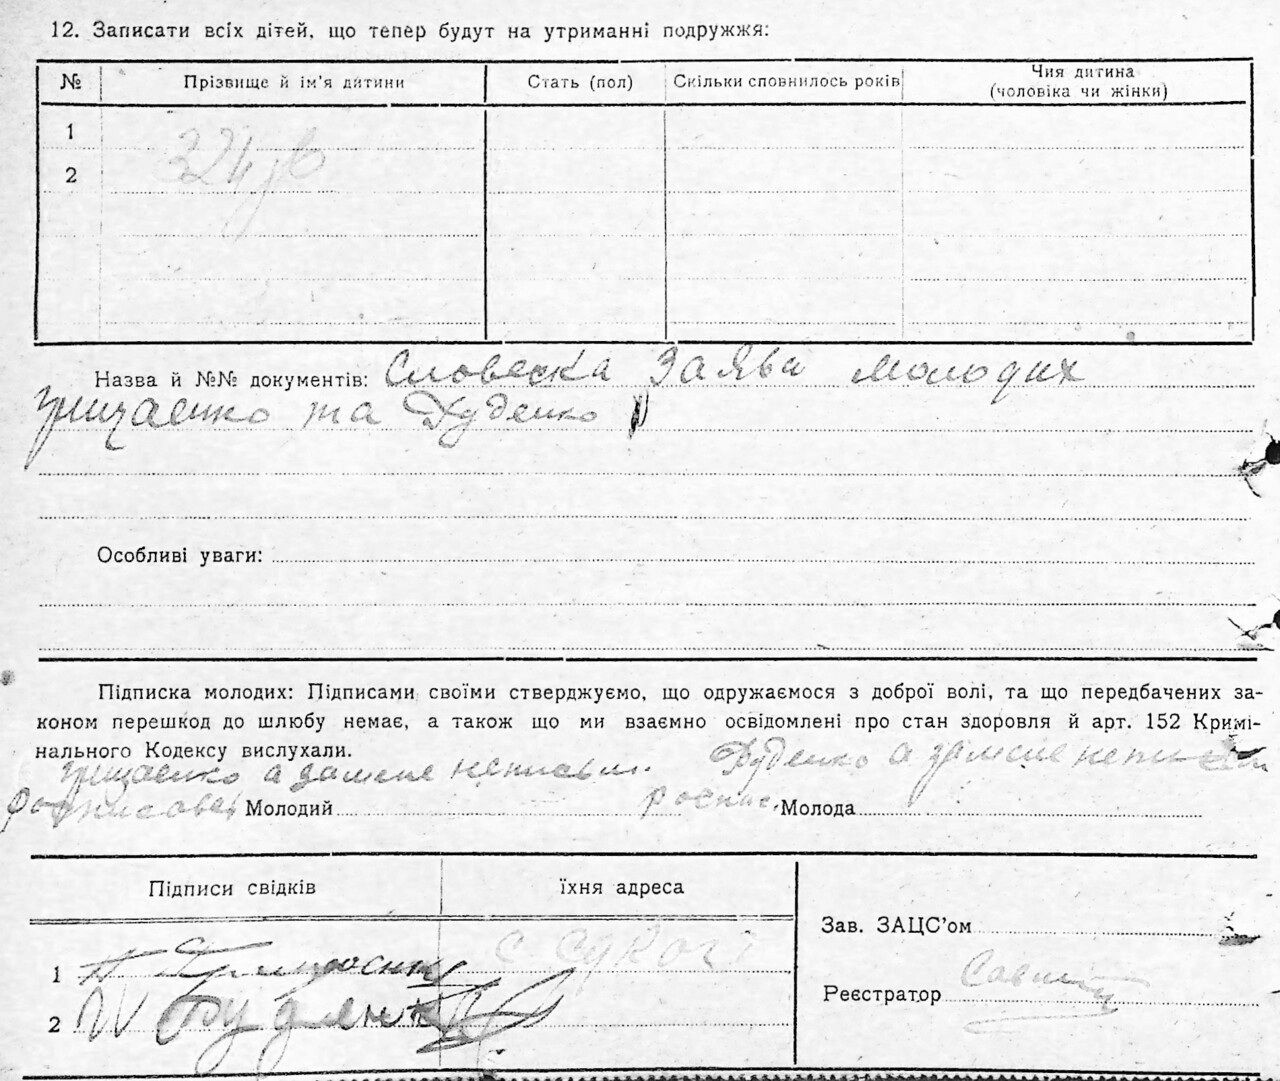 12. Записати всіх дітей, що тепер будут на утриманні подружжя:
№ Прізвище й ім’я дитини Стать (пол) Скільки сповнилось років Чия дитина
(чоловіка чи жінки)
1
2
Назва й №№ документів: Словеска Заява молодих
та Дуденко
Особливі уваги:
Підписка молодих: Підписами своїми стверджуємо, що одружаємося з доброї волі, та що передбачених за-
коном перешкод до шлюбу немає, а також що ми взаємно освідомлені про стан здоровля й арт. 152 Кримі-
нального Кодексу вислухали.
а за мене Дуденко а за мене
Молодий роспис. Молода
Підписи свідків їхня адреса
Зав. ЗАЦС’ом
1 с
Реєстратор
2